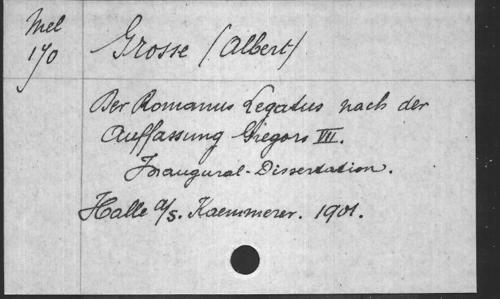 Mel
170
Grosse (Albert)
Der Romanus Legatus nach der
Auffassung Gregors VII.
Inaugural-Dissertation.
Halle a/s. Kaemmerer. 1901.